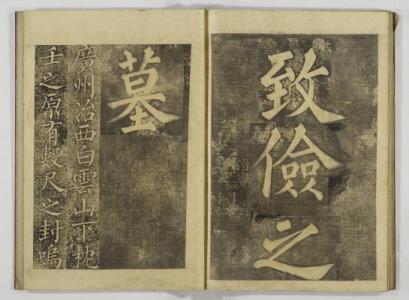 致儉之
墓
廣州治西白雲山下枕
壬之原有數尺之封嗚